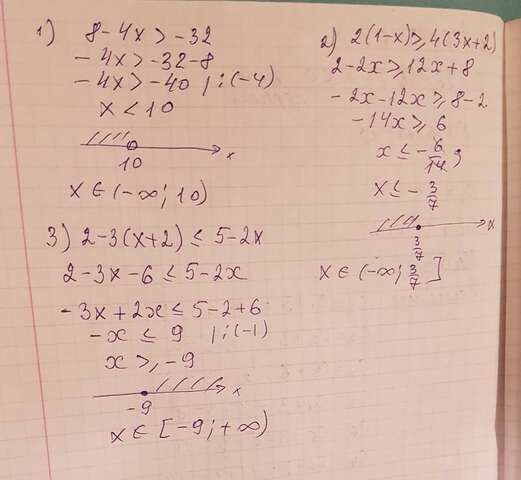 1) 8-4x>-32
-4x>-32-8
-4x>-40 |:(-4)
x<10
10 x
x∈(-∞;10)
2) 2(1-x)≥4(3x+2)
2-2x≥12x+8
-2x-12x≥8-2
-14x≥6
x≤-6/14;
x≤-3/7
3/7 x
x∈(-∞;3/7]
3) 2-3(x+2)≤5-2x
2-3x-6≤5-2x
-3x+2x≤5-2+6
-x≤9 |:(-1)
x≥-9
-9 x
x∈[-9;+∞)